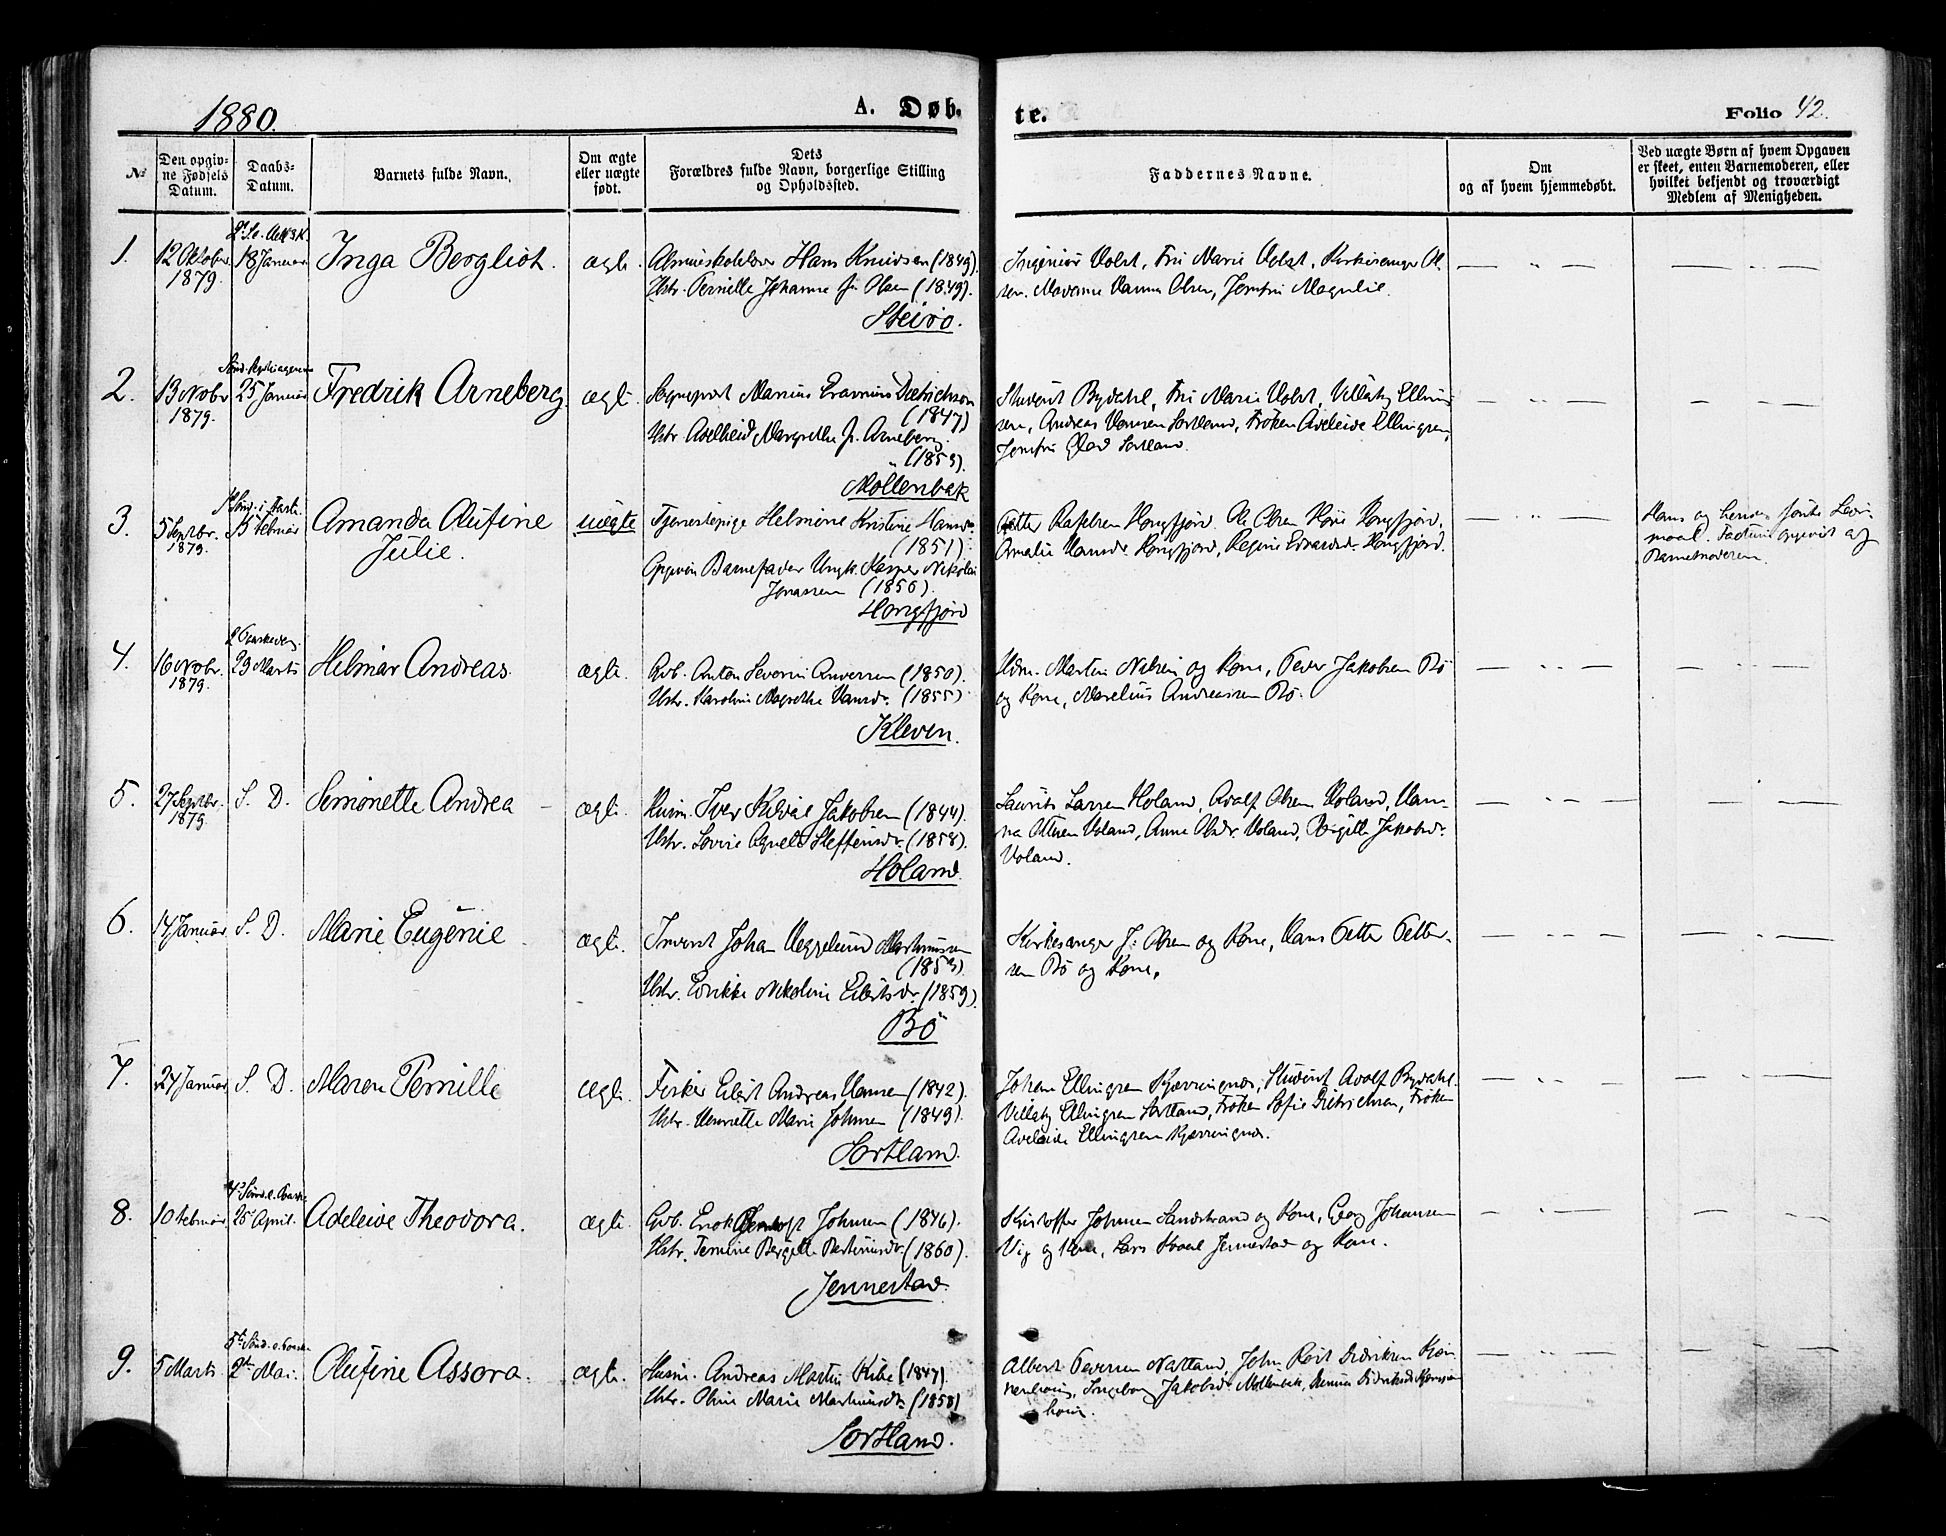 1880.
A. Døb-
te.
Folio 42.
№
Den opgiv-
ne Fødsels
Datum.
Daabs-
Datum.
Barnets fulde Navn.
Om ægte
eller uægte
født.
Dets
Forældres fulde Navn, borgerlige Stilling
og Opholdssted.
Faddernes Navne.
Om
og af hvem hjemmedøbt.
Ved uægte Børn af hvem Opgaven
er skeet, enten Barnemoderen, eller
hvilket bekjendt og troværdigt
Medlem af Menigheden.
1.
12 Oktober
1879.
18 Januar
Inga Bergliot.
ægte.
Hans Knudsen (1849).
Hstr. Pernille Johanna f. Olsen (1849).
Steirø.
Ingeniør Holst, Fru Marie Holst, Kirkesanger Ol-
sen, Madame Hanna Olsen, Jomfru
2.
13 Novbr
1879.
25 Januar
Fredrik Arneberg.
ægte.
Sogneprest Marius Dietrichson
(1847)
Hstr. Adelheid Margrethe f. Arneberg.
(1853).
Møllenbak
Student Bydahl, Fru Marie Holst, Elling-
sen, Andreas Hansen Sortland, Frøken Adeleide Ellingsen,
Jomfru Sortland.
3
5 Septbr.
1879.
Februar
Amanda Olufine
Julie.
uægte
Tjenestepige Helmine Kristine Hansdr
(1851).
Opgiven Barnefader Ungk. Kasper Nikolai
Jonassen (1856).
Hongfjord
Petter Hongfjord. Ole Olsen Hongfjord,
Amalie Hansdr Hongfjord, Regine Hongfjord.
Hans og hendes første Leier-
maal. Factum opgivet af
Barnemoderen.
4.
16 Novbr.
1879.
2 Paaskedag
29 Marts
Helmar Andreas.
ægte.
Gdb. Anton Severin (1850).
Hstr. Karoline Magrethe Hansdr. (1855)
Kleven.
Morten og Kone, Peder Jakobsen Bø
og Kone, Marelius Andreassen Bø.
5.
27 Septbr.
1879
S. D.
Simonette Andrea
ægte.
Husm. Iver Jakobsen (1844).
Hstr. Lovise Steffensdr. (1858).
Holand.
Laurits Larsen Holand, Adolf Olsen Holand, Han-
na Holand, Anne Olsdr. Holand, Birgitte Jakobsdr.
Holand.
6.
14 Januar.
S. D.
Marie Eugenie
ægte.
Inderst Johan Martinussen
(1853)
Hstr. Edrikke Nikoline Eilertsdr. (1859).
Bø
Kirkesanger J. Olsen og Kone, Hans Petter Petter-
sen Bø og Kone.
7.
24 Januar.
S. D.
Maren Pernille
ægte.
Fisker Eilert Andreas Hansen (1842).
Hstr. Henriette Marie Johnsen (1849).
Sortland.
Johan Ellingsen Kjerringnes, Student Adolf Bydahl.
Ellingsen Sortland, Frøken Sofie Dietrichson, Frøken
Adeleide Ellingsen Kjerringnes.
8.
10 Februar
25 April.
Adeleide Theodora.
ægte.
Gdb. Enok Johnsen (1846).
Hstr. Bergitte (1860).
Jennestad.
Kristoffer Johnsen Sandstrand og Kone, Georg Johansen
Vig og Kone, Lars Jennestad og Kone.
9.
5 Marts
2den Mai.
Olufine Assora.
ægte.
Husm. Andreas Martin (1847).
Hstr. Oline Marie Martinusdr. (1858)
Sortland.
Albert Pedersen John Didriksen
Ingeborg Jakobsdr Møllenbak,